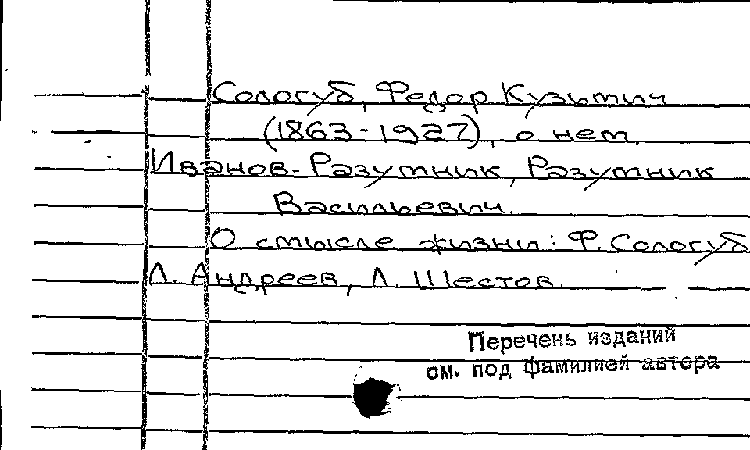 Сологуб, Федор Кузьмич
(1863-1927), о нем.
Иванов-Разумник, Разумник
Васильевич.
О смысле жизни: Ф. Сологуб
Л. Андреев, Л. Шестов.
Перечень изданий
см. под фамилией автора